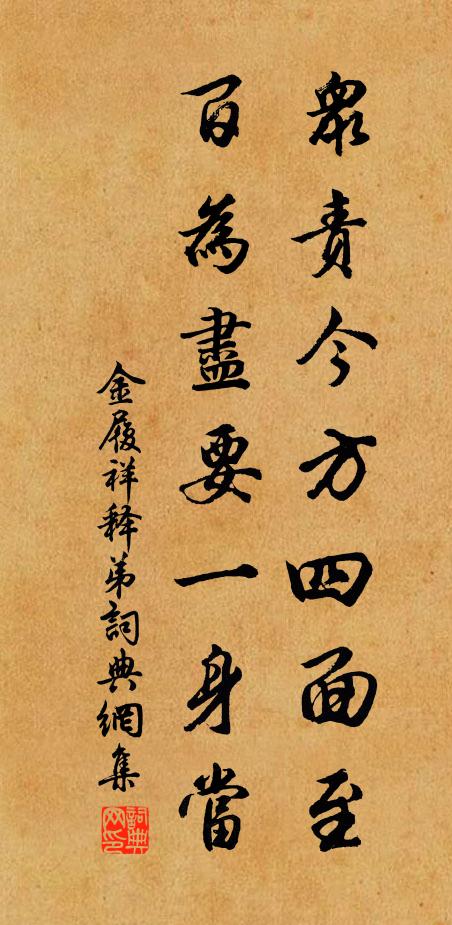 衆責今方四面至
百為盡要一身當
金履祥释弟詞典網集
詞典网印